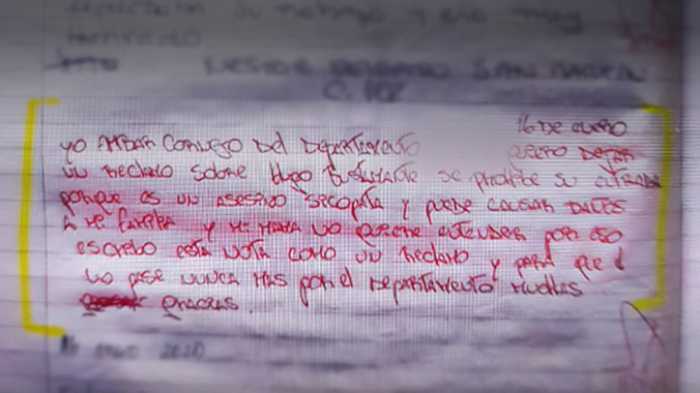 16 DE ENERO
yo AMBAR CORNEJO DEL DEPARTAMENTO QUIERO DEJAR
UN RECLAMO SOBRE HUGO BUSTAMANTE SE PROHIBE SU ENTRADA
PORQUE ES UN ASESINO SICOPATA y PUEDE CAUSAR DAÑOS
A MI FAMILIA y MI MAMA NO QUIERE ENTENDER POR ESO
ESCRIBO ESTA NOTA COMO UN RECLAMO y PARA QUE él
NO PASE NUNCA MAS POR EL DEPARTAMENTO MUCHAS
GRACIAS.
16 ENERO 2020